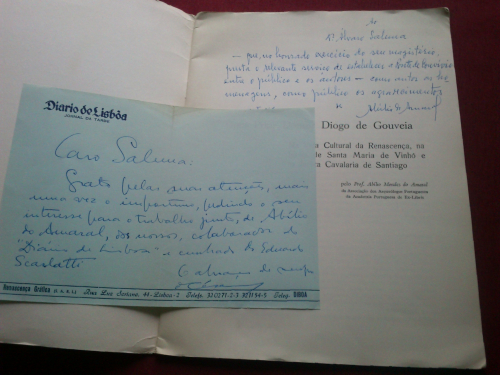 Ao
Dr. Álvaro Salema
— que, no honrado exercício do seu magistério,
presta o relevante serviço de estabelecer a ponte de
entre o público e os autores — com muitas ho
menagens, como público os agradecimentos
Diogo de Gouveia
Cultural da Renascença, na
de Santa Maria de Vinhó e
Cavalaria de Santiago
pelo Prof. Abílio Mendes do Amaral
da Associação dos Arqueólogos Portugueses
Diario de Lisbôa
JORNAL DA TARDE
Caro Salema:
Grato pelas suas atenções, mais
uma vez o importuno, pedindo o seu
interesse para o trabalho junto, de Abílio
do Amaral, dos nossos, colaborador do
"Diário de Lisboa" e cunhado do Eduardo
Scarlatti
O abraço de sempre
Renascença Gráfica S.A.R.L. Rua Luz Soriano, 44-Lisboa-2 Telefs. 32 02 71-2-3 32 11 54-5 Teleg. DISBOA